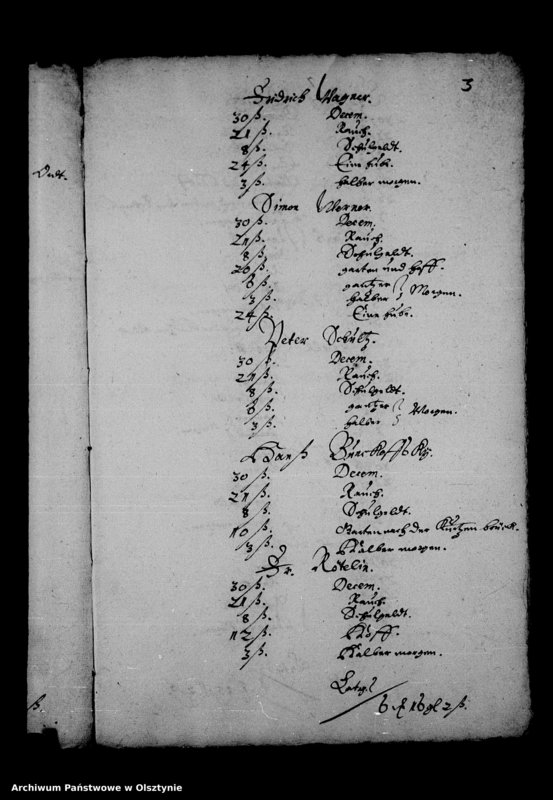 3
Fridrich Wagner.
30 ß. Decem.
21 ß. Rauch.
8 ß. Schulgeldt.
24 ß. Eine hube.
3 ß. halber morgen.
Simon Werner.
30 ß. Decem.
21 ß. Rauch.
8 ß. Schulgeldt.
20 ß. garten und hoff.
8 ß. gantzer
3 ß. halber Morgen.
24 ß. Eine hube.
Peter Schultz.
30 ß. Decem.
21 ß. Rauch.
8 ß. Schulgeldt.
8 ß. gantzer
3 ß. halber Morgen.
Hanß
30 ß. Decem.
21 ß. Rauch.
8 ß. Schulgeldt.
10 ß. Garten nach der Kurtzen brück.
3 ß. Halber morgen.
Fr. Rötelin.
30 ß. Decem.
21 ß. Rauch.
8 ß. Schulgeldt.
12 ß. Hoff.
3 ß. Halber morgen.
Latus
6 16 gl 2 ß.
Archiwum Państwowe w Olsztynie